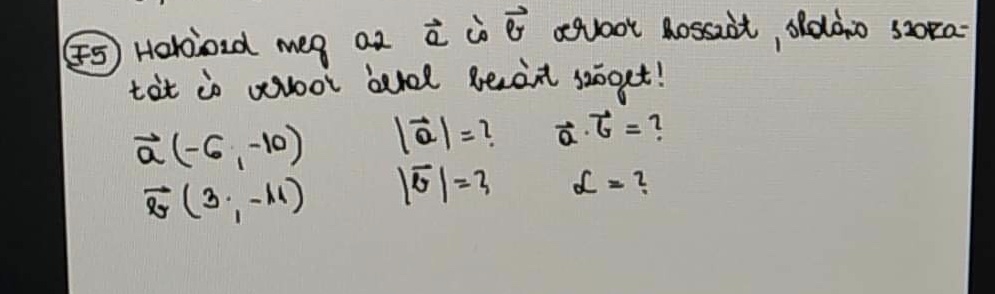 F5 Határozd meg az a⃗ és b⃗ vektor hosszát, skaláris szorza-
tát és vektor által bezárt szöget!
a⃗ (-6; -10) |a⃗| = ? a⃗ · b⃗ = ?
b⃗ (3; -11) |b⃗| = ? α = ?